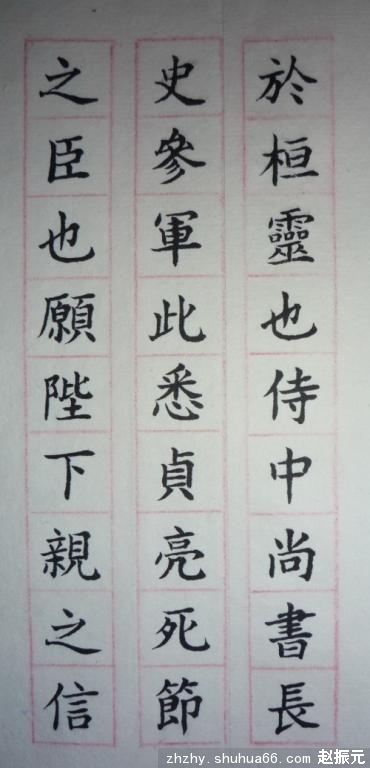 於桓靈也侍中尚書長
史參軍此悉貞亮死節
之臣也願陛下親之信
zhzhy.shuhua66.com 赵振元